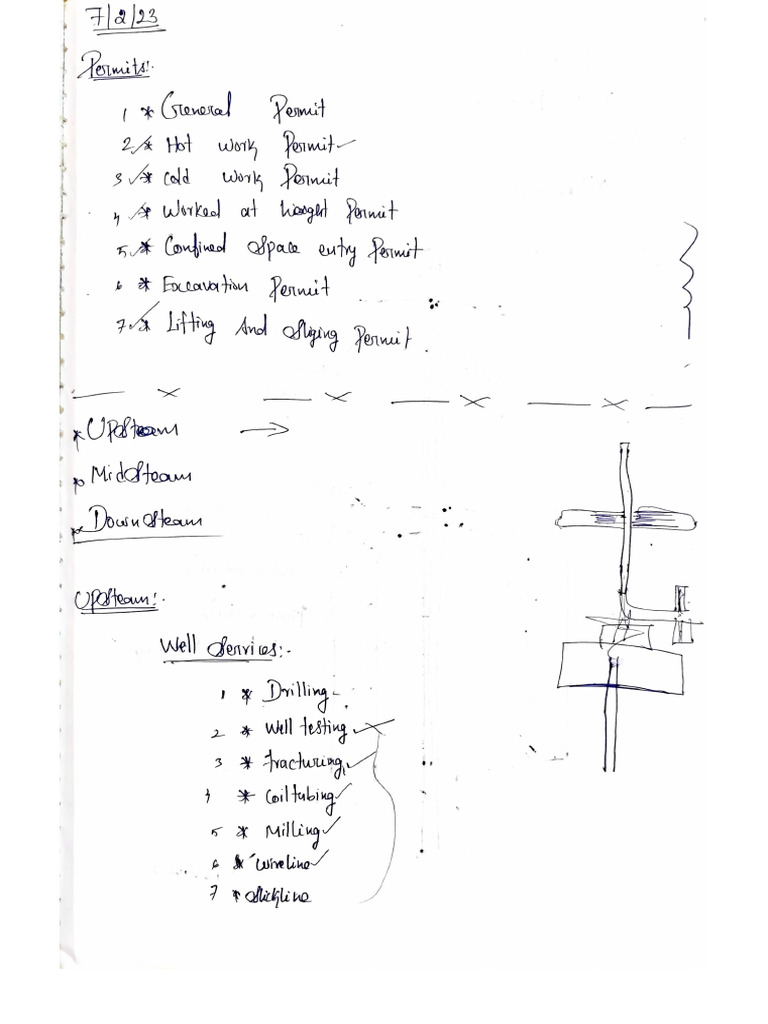 7/2/23
Permits:-
1 * General Permit
2 * Hot work Permit
3 * Cold work Permit
4 * Worked at hieght Permit
5 * Confined space entry Permit
6 * Excavation Permit
7 * Lifting And Sliging Permit.
* Upsteam →
* Midsteam
* Downsteam
Upsteam:-
Well Services:-
1 * Drilling
2 * Well testing
3 * fracturing
4 * Coil tubing
5 * Milling
6 * wireline
7 * Slickline